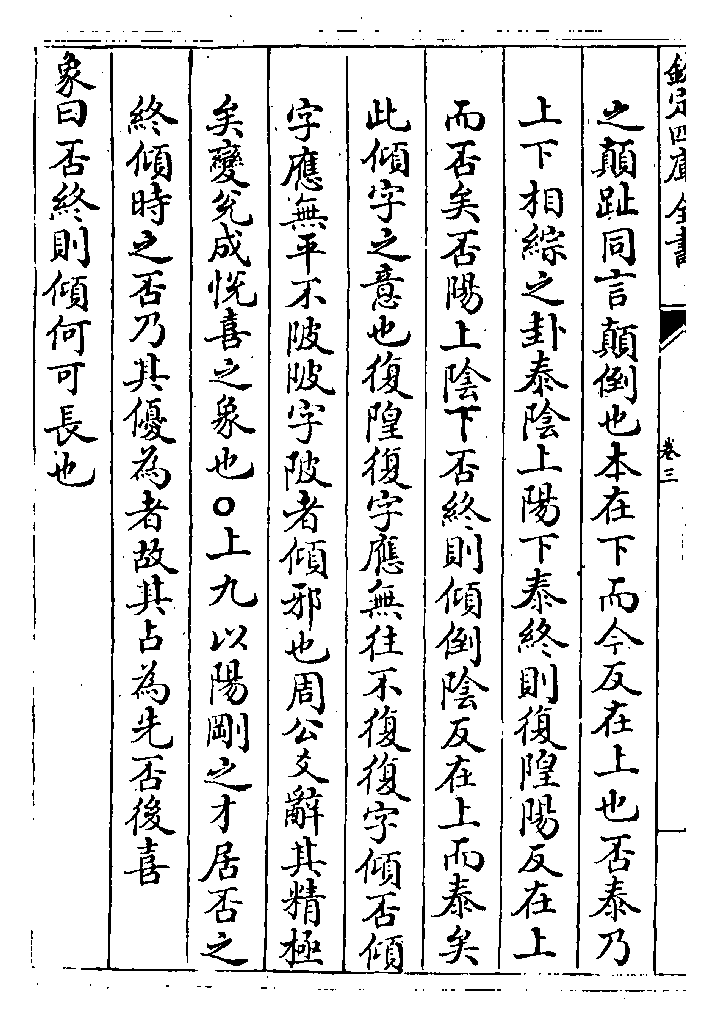 欽定四庫全書
卷三
之顛趾同言顛倒也本在下而今反在上也否泰乃
上下相綜之卦泰陰上陽下泰終則復隍陽反在上
而否矣否陽上陰下否終則傾倒陰反在上而泰矣
此傾字之意也復隍復字應無往不復復字傾否傾
字應無平不陂陂字陂者傾邪也周公爻辭其精極
矣變兌成悅喜之象也○上九以陽剛之才居否之
終傾時之否乃其優為者故其占為先否後喜
象曰否終則傾何可長也